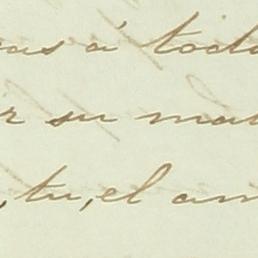 as á tod
r su mat
, tu, el am